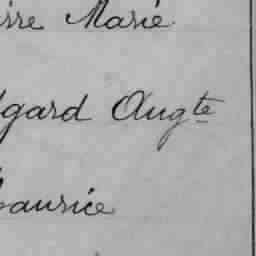 ierre Marie
dgard Aug^te
Maurice